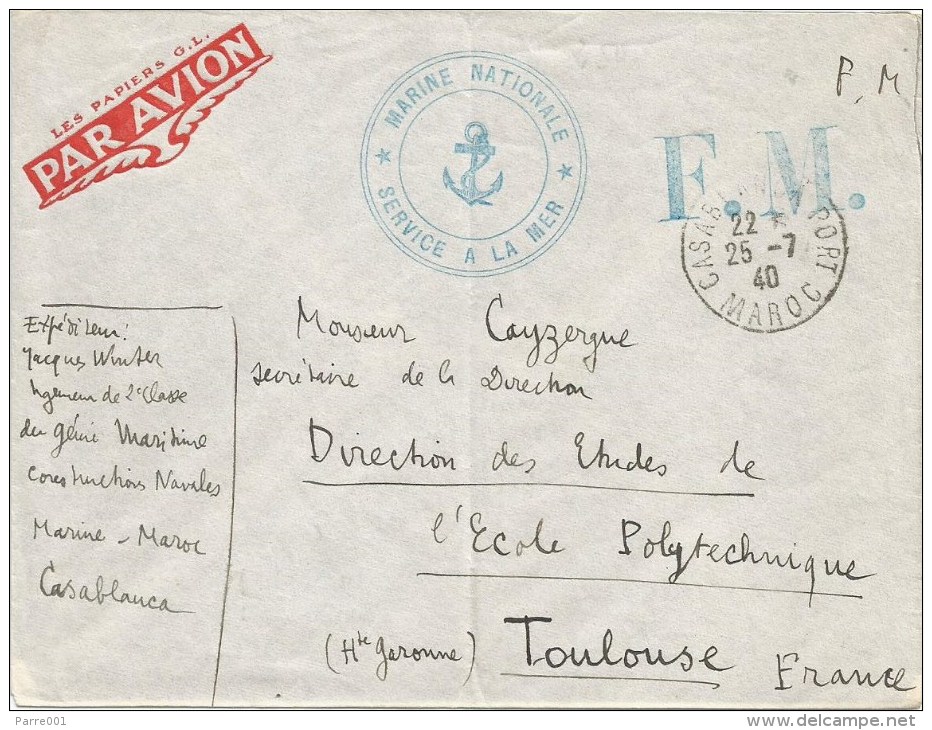 LES PAPIERS G.L.
PAR AVION
MARINE NATIONALE
SERVICE A LA MER
F, M
F.M.
CASABLANCA PORT
22
25 -7
40
MAROC
Expéditeur:
Jacques Winter
Ingénieur de 2e Classe
du génie Maritime
Constructions Navales
Marine - Maroc
Casablanca
Monsieur Cayzergue
secrétaire de la Direction
Direction des Etudes de
l'Ecole Polytechnique
(Hte Garonne) Toulouse France
Parre001
www.delcampe.net